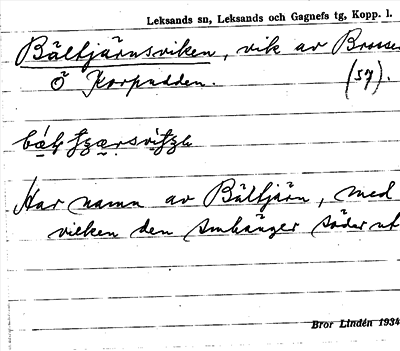 Leksands sn, Leksands och Gagnefs tg, Kopp. l.
Bältjärnsviken, vik av Brosse
Ö Korpudden. (57).
Har namn av Bältjärn, med
vilken den smhänger söder ut
Bror Lindén 1934